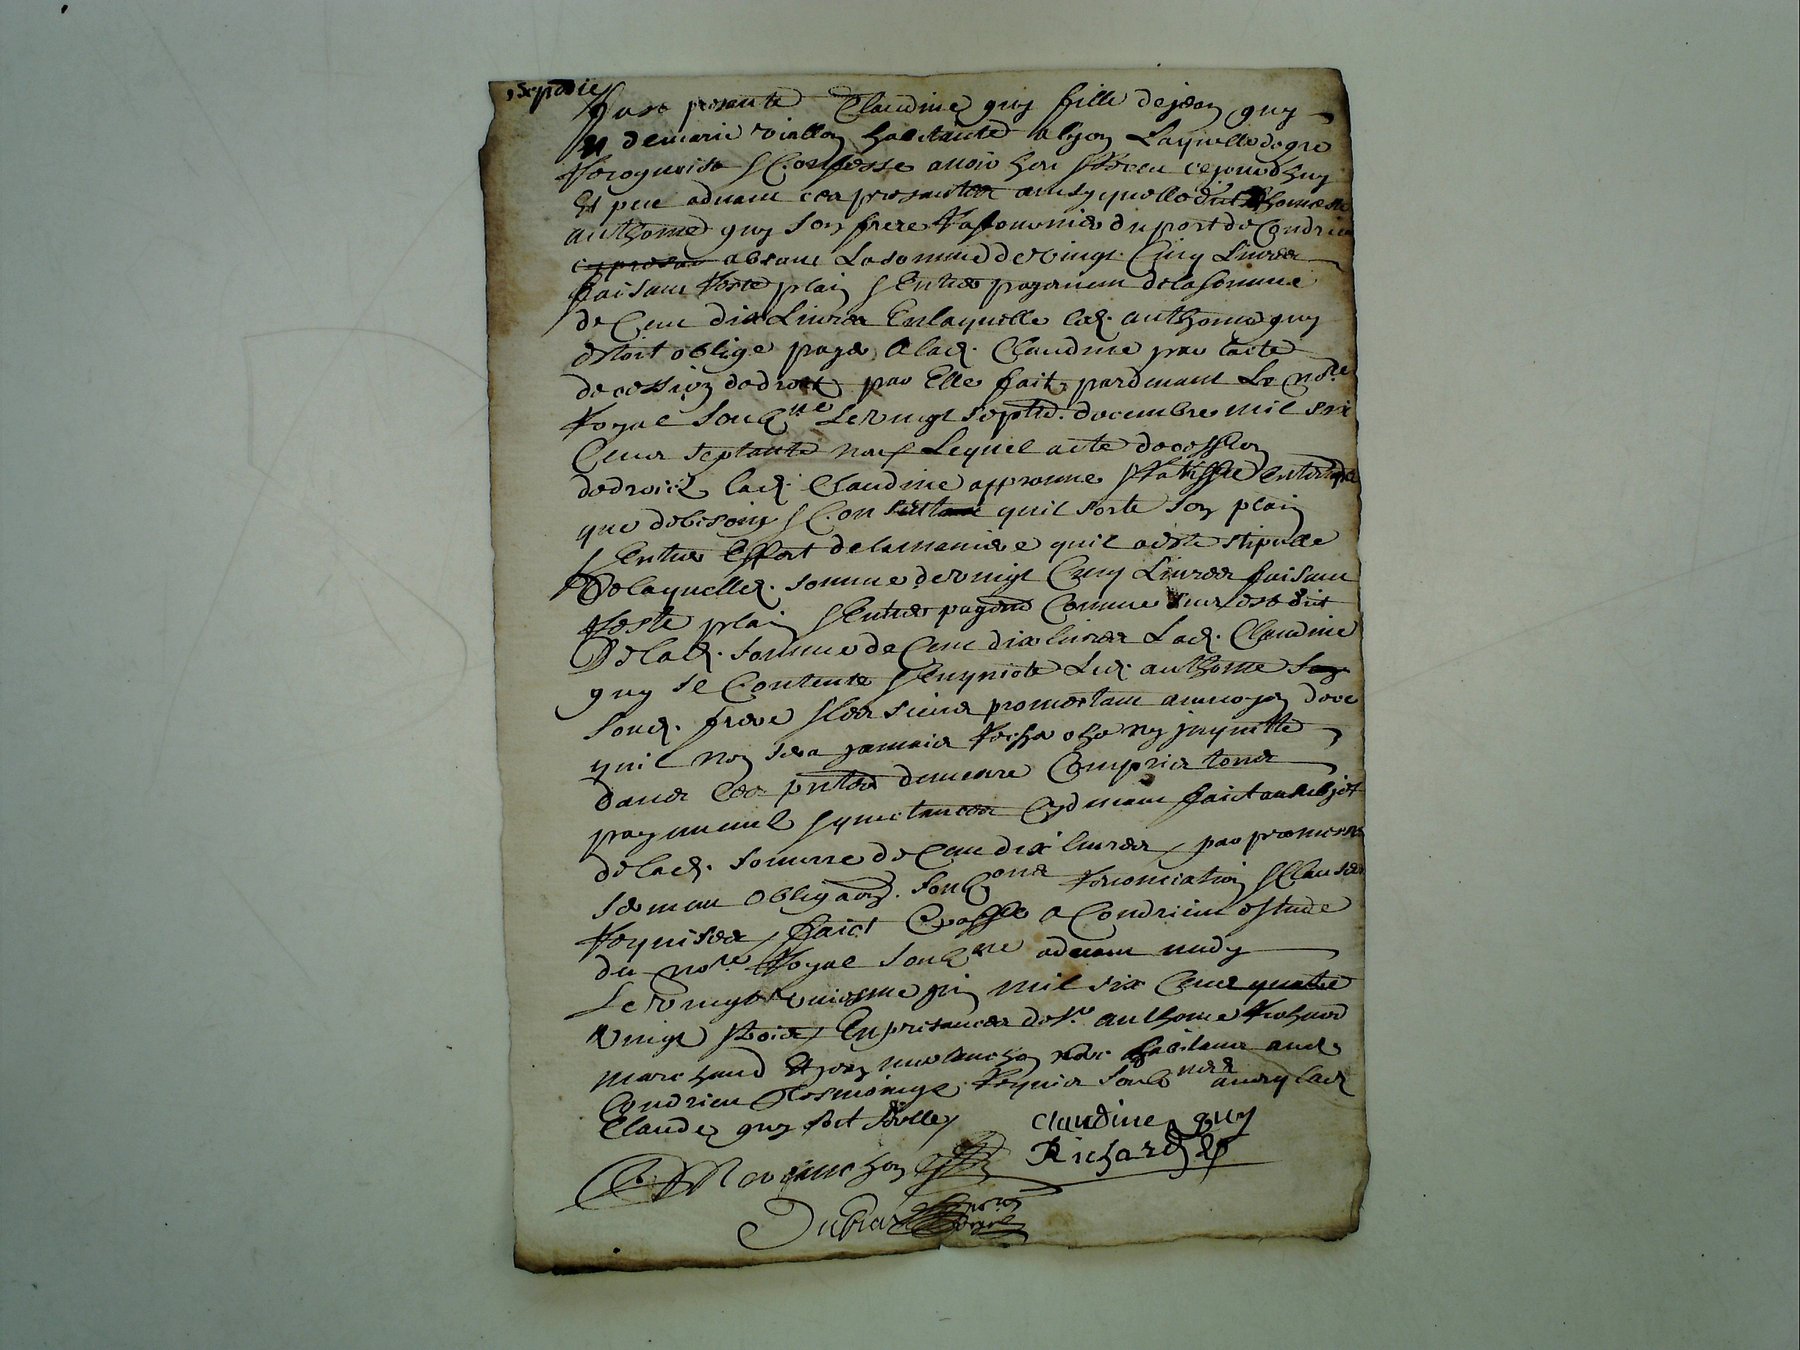 expedie
Fust presante Claudine guy fille de jean guy
Et de marie viallon habitante a lyon Laquelle de gre
Recognoist & Confesse avoir heu & Receu cejourdhuy
Et par advant ces presantes ainsy quelle dict d'honneste
anthoine guy son frere du port de Condrieu
absant La somme de vingt Cinq Livres
faisant Reste plain & Entier payement de la somme
de Cent dix Livres En laquelle led. anthoine guy
estoit oblige payer a lad. Claudine par lacte
de cession de droit par Elle fait, pardevant Le nore
Royal soubne Le vingt septie. decembre mil six
Cents septante neuf Lequel acte de cession
de droictz lad. Claudine approuve & Ratiffie en tant
que de besoing & Consent quil sorte son plain
& Entier Effect de la maniere quil a este stipulle
De laquelle d. somme de vingt Cinq Livres faisant
Reste plain & Entier payemt Comme sus est dit
De lad. somme de Cent dix livres Lad. Claudine
guy se Contente & Enquicte Led. anthoine
sond. frere & les siens promettant au moyen de ce
quil ny sera jamais Recherche ny jnquitte
dans Ces pntes demeure Compris tous
payements & quictances Cydevant faict au subjet
de lad. somme de Cent dix livres, par promesses
serment obligaon. soubons Renonciation & Clauses
Requises, faict & passe a Condrieu estude
du nore. Royal soubne advant midy
Le vingt mil six Cens quatre
vingt trois, En presances de sr. anthoine Richard
marchand Et jean habitans aud.
Condrieu tesmoings Requis soubnes avecq lad.
Claude guy soit
Claudine guy
Richard
Dubiar nore Royal